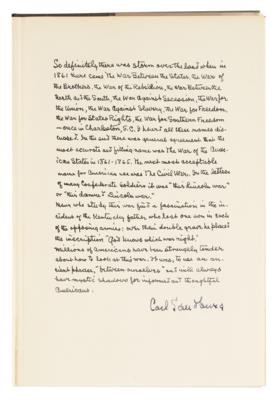 So definitely there was storm over the land when in
1861 there came The War Between the States, the War of
the Brothers, the War of the Rebellion, the War Between the
North and the South, the War Against Secession, the War for
the Union, the War Against Slavery, the War for Freedom,
the War for States Rights, the War for Southern Freedom
— once in Charleston, S.C., I heard all these names dis-
cussed. In the end there was general agreement that the
most accurate and fitting name was The War of the Amer-
ican States in 1861-1865. The most acceptable
name for American use was The Civil War. In the letters
of many Confederate soldiers it was "this Lincoln war"
or "this damned Lincoln war."
Men who study this war find a fascination in the in-
cident of the Kentucky father who lost one son in each
of the opposing armies: over their double grave he placed
the inscription "God knows which was right."
Millions of Americans have been strangely tender
about how to look at this war. It was, to use an an-
cient phrase, "between ourselves" and will always
have mystic shadows for informed and thoughtful
Americans.
Carl Sandburg